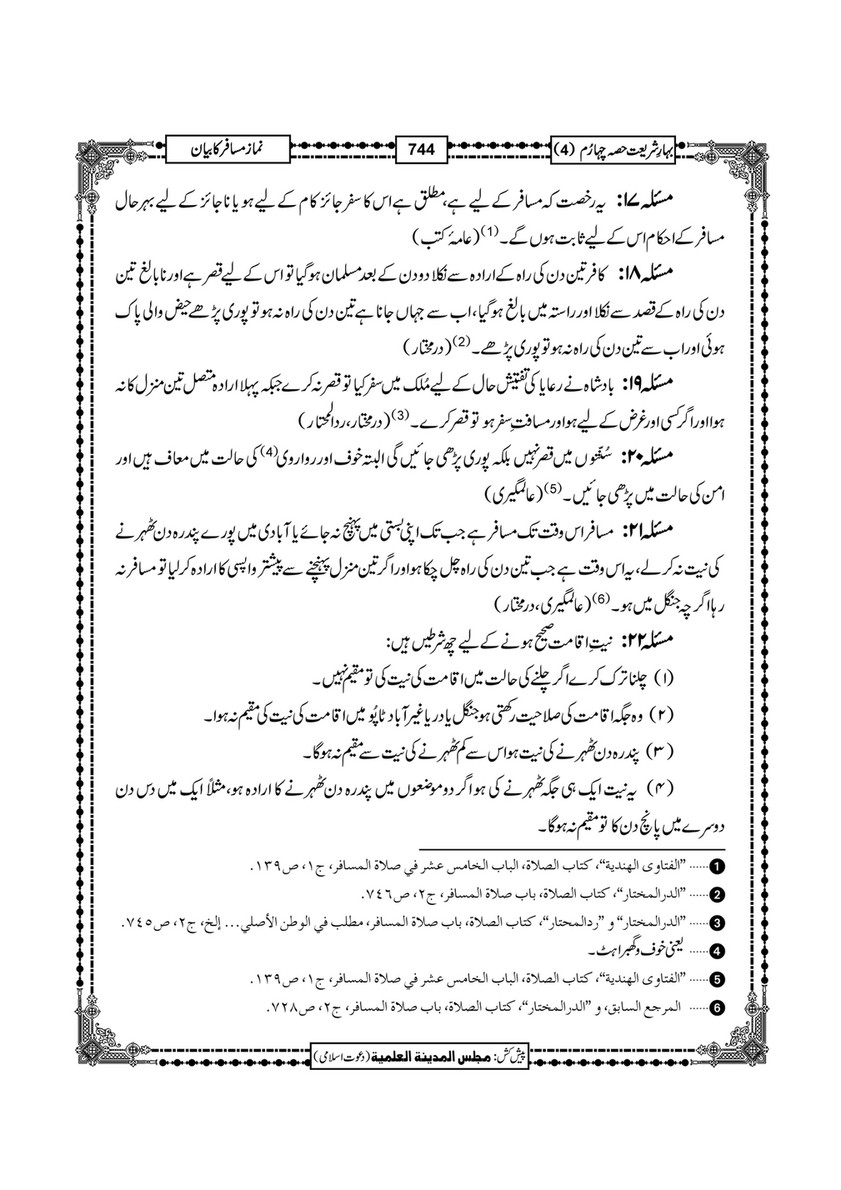 بہارِشریعت حصہ چہارُم (4)
744
نمازِ مسافر کا بیان
مسئلہ ۱۷: یہ رخصت کہ مسافر کے لیے ہے، مطلق ہے اس کا سفر جائز کام کے لیے ہو یا ناجائز کے لیے بہرحال
مسافر کے احکام اس کے لیے ثابت ہوں گے۔(1) (عامۂ کتب)
مسئلہ ۱۸: کافر تین دن کی راہ کے ارادہ سے نکلا دو دن کے بعد مسلمان ہوگیا تو اس کے لیے قصر ہے اور نابالغ تین
دن کی راہ کے قصد سے نکلا اور راستہ میں بالغ ہوگیا، اب سے جہاں جانا ہے تین دن کی راہ نہ ہو تو پوری پڑھے حیض والی پاک
ہوئی اور اب سے تین دن کی راہ نہ ہو تو پوری پڑھے۔(2) (درمختار)
مسئلہ ۱۹: بادشاہ نے رعایا کی تفتیش حال کے لیے مُلک میں سفر کیا تو قصر نہ کرے جبکہ پہلا ارادہ متصل تین منزل کا نہ
ہوا اور اگر کسی اور غرض کے لیے ہو اور مسافتِ سفر ہو تو قصر کرے۔(3) (درمختار، ردالمحتار)
مسئلہ ۲۰: سُنّتوں میں قصر نہیں بلکہ پوری پڑھی جائیں گی البتہ خوف اور رواروی(4) کی حالت میں معاف ہیں اور
امن کی حالت میں پڑھی جائیں۔(5) (عالمگیری)
مسئلہ ۲۱: مسافر اس وقت تک مسافر ہے جب تک اپنی بستی میں پہنچ نہ جائے یا آبادی میں پورے پندرہ دن ٹھہرنے
کی نیت نہ کرلے، یہ اس وقت ہے جب تین دن کی راہ چل چکا ہو اور اگر تین منزل پہنچنے سے پیشتر واپسی کا ارادہ کرلیا تو مسافر نہ
رہا اگرچہ جنگل میں ہو۔(6) (عالمگیری، درمختار)
مسئلہ ۲۲: نیتِ اقامت صحیح ہونے کے لیے چھ شرطیں ہیں:
(۱) چلنا ترک کرے اگر چلنے کی حالت میں اقامت کی نیت کی تو مقیم نہیں۔
(۲) وہ جگہ اقامت کی صلاحیت رکھتی ہو جنگل یا دریا غیر آباد ٹاپُو میں اقامت کی نیت کی مقیم نہ ہوا۔
(۳) پندرہ دن ٹھہرنے کی نیت ہو اس سے کم ٹھہرنے کی نیت سے مقیم نہ ہوگا۔
(۴) یہ نیت ایک ہی جگہ ٹھہرنے کی ہو اگر دو موضعوں میں پندرہ دن ٹھہرنے کا ارادہ ہو، مثلاً ایک میں دس دن
دوسرے میں پانچ دن کا تو مقیم نہ ہوگا۔
1 ...... ''الفتاوى الهندية''، كتاب الصلاة، الباب الخامس عشر في صلاة المسافر، ج١، ص١٣٩.
2 ...... ''الدرالمختار''، كتاب الصلاة، باب صلاة المسافر، ج٢، ص٧٤٦.
3 ...... ''الدرالمختار'' و ''ردالمحتار''، كتاب الصلاة، باب صلاة المسافر، مطلب في الوطن الأصلي... إلخ، ج٢، ص٧٤٥.
4 ...... یعنی خوف وگھبراہٹ۔
5 ...... ''الفتاوى الهندية''، كتاب الصلاة، الباب الخامس عشر في صلاة المسافر، ج١، ص١٣٩.
6 ...... المرجع السابق، و ''الدرالمختار''، كتاب الصلاة، باب صلاة المسافر، ج٢، ص٧٢٨.
پیش کش: مجلس المدینة العلمیة (دعوتِ اسلامی)